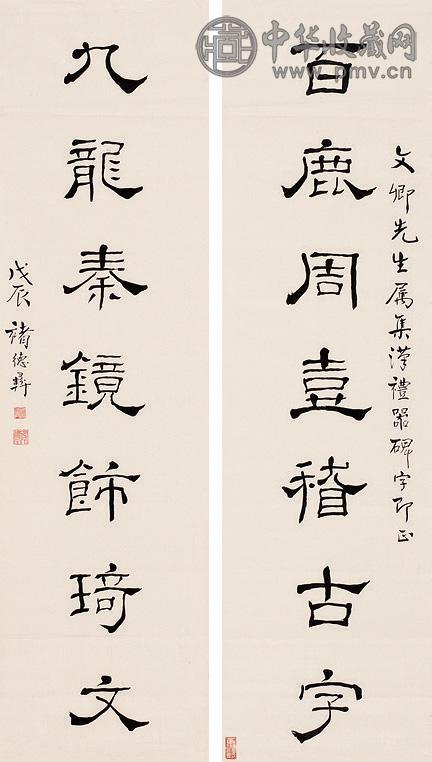 中华收藏网
www.pmv.cn
百鹿周壴稽古字
文卿先生属集汉禮器碑字即正
九龍秦鏡飾琦文
戊辰褚德彝